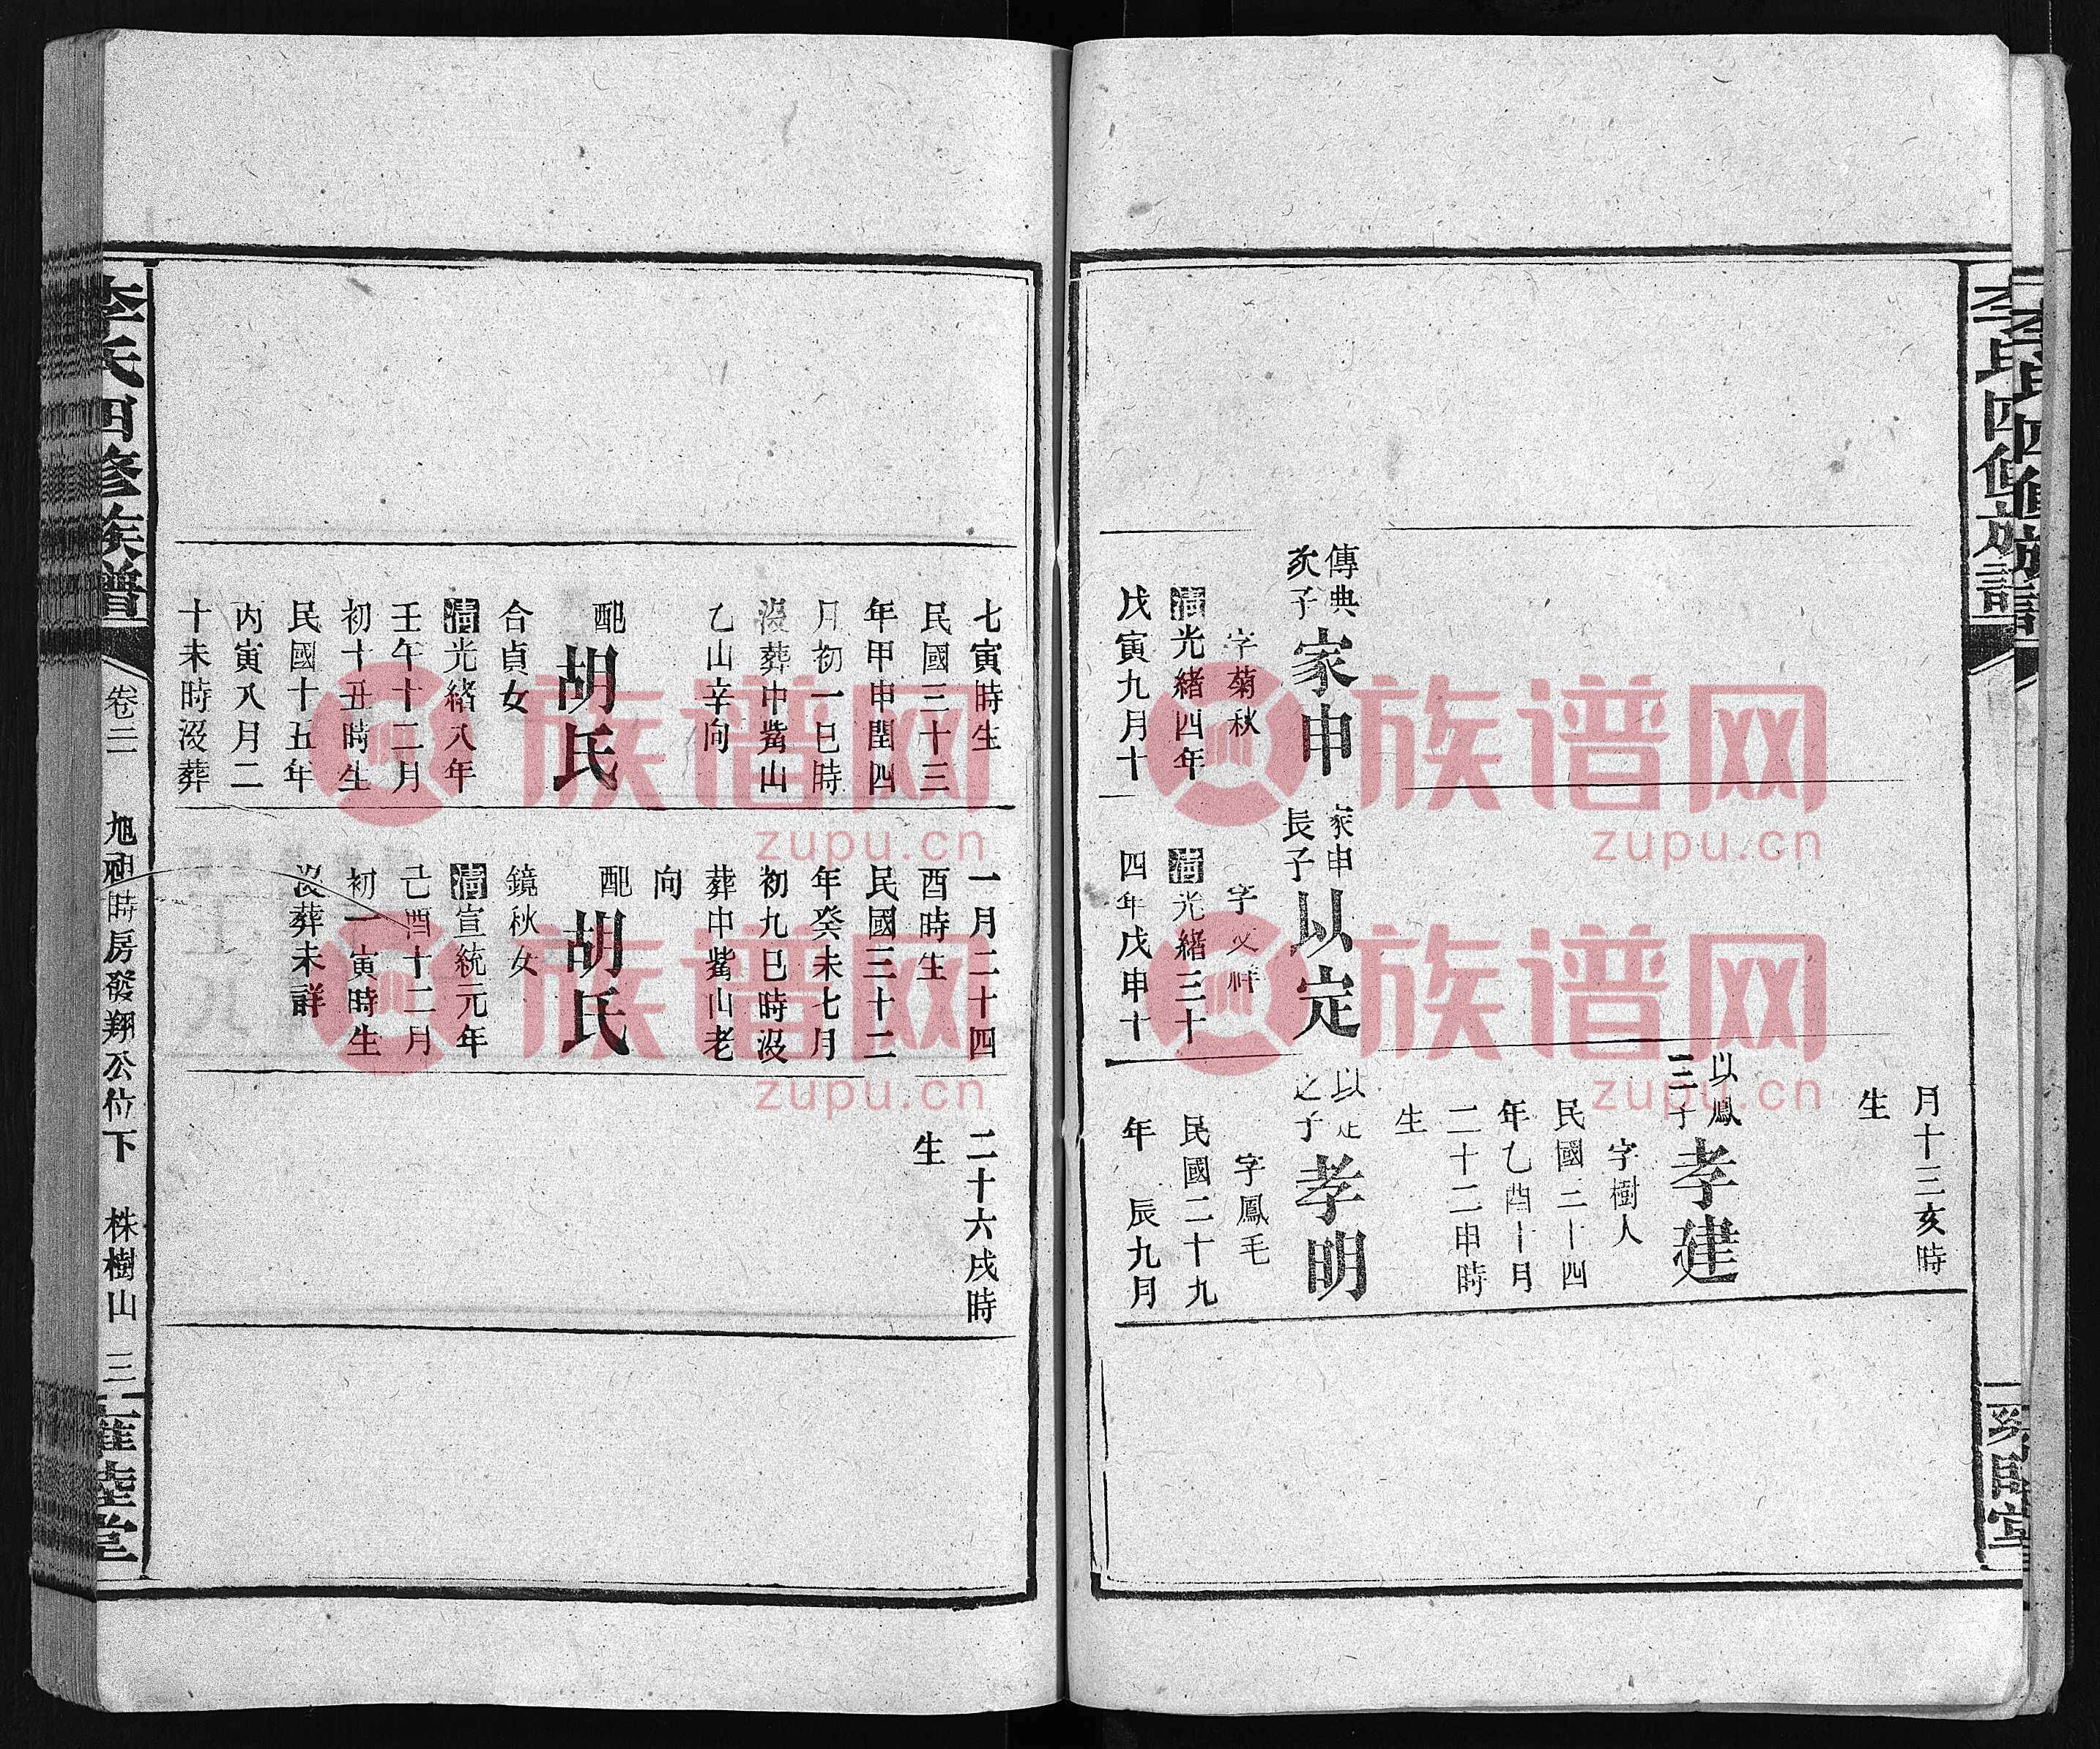 李氏四修族譜
月十三亥時
生
以鳳
三子
孝建
字樹人
民國二十四
年乙酉十月
二十二申時
生
傳典
次子
家申
字菊秋
清光緒四年
戊寅九月十
家申
長子
以定
清光緒三十
四年戊申十
以定
之子
孝明
字鳳毛
民國二十九
年 辰九月
七寅時生
民國三十三
年甲申閏四
月初一巳時
沒葬中嶲山
乙山辛向
配
胡氏
合貞女
清光緒八年
壬午十二月
初十丑時生
民國十五年
丙寅八月二
十未時沒葬
一月二十四
酉時生
民國三十二
年癸未七月
初九巳時沒
葬中嶲山老
向
配
胡氏
鏡秋女
清宣統元年
己酉十二月
初一寅時生
沒葬未詳
二十六戌時
生
李氏四修族譜
卷二
時房發翔公位下
株樹山
三
族谱网
zupu.cn
族谱网
zupu.cn
族谱网
zupu.cn
族谱网
zupu.cn